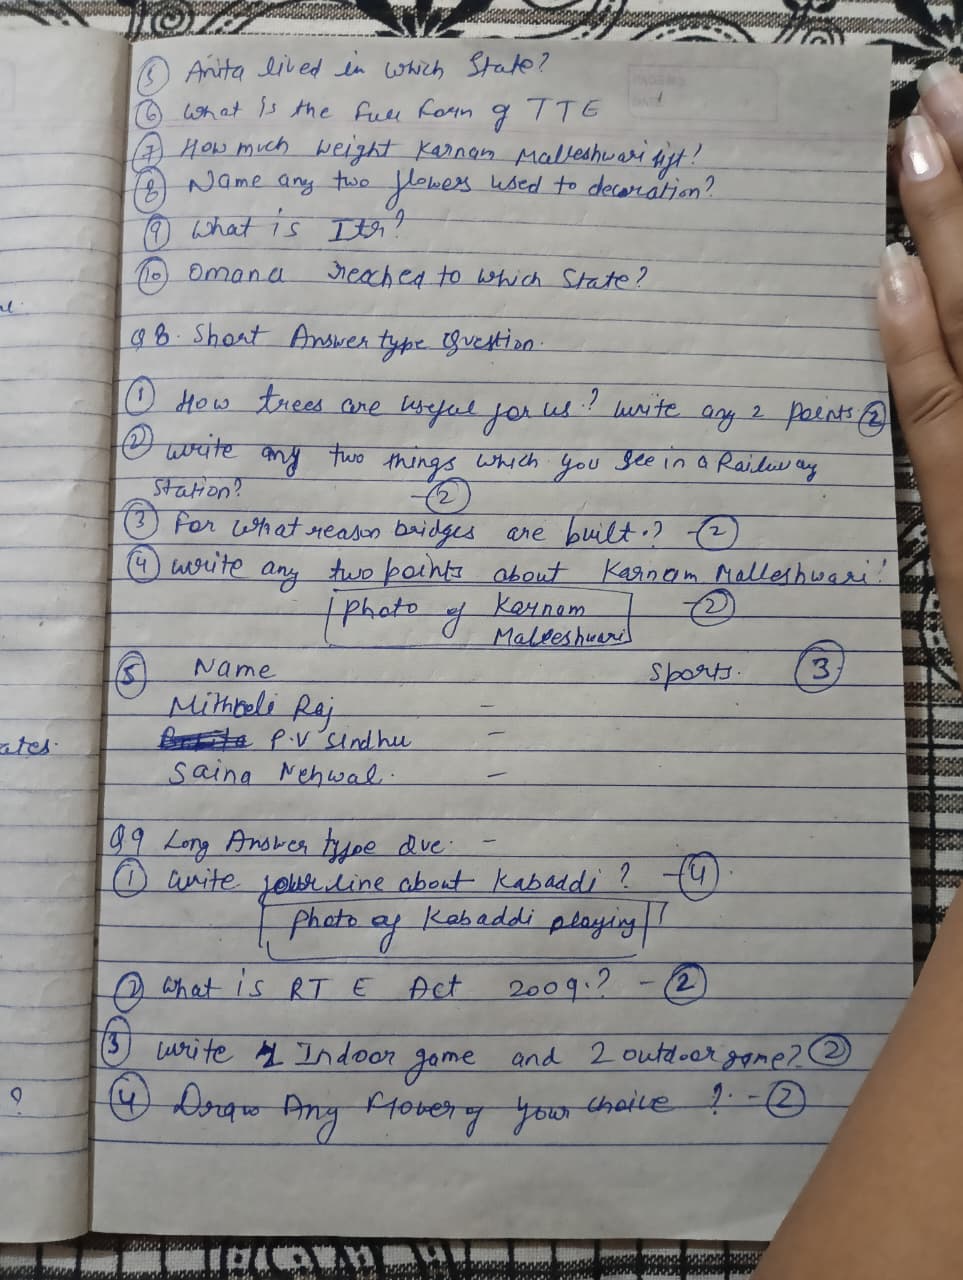 5 Anita lived in which State?
6 What is the full form of TTE
7 How much weight Karnam Malleshwari lift?
8 Name any two flowers used to decoration?
9 What is Itr?
10 Omana reached to which State?
Q8. Short Answer type Question.
1 How trees are useful for us? Write any 2 points. 2
2 Write any two things which you see in a Railway
Station? - 2
3 For what reason bridges are built.? - 2
4 write any two points about Karnam Malleshwari?
Photo of Karnam - 2
Malleshwari
5 Name Sports. 3
Mithali Raj -
P.V Sindhu -
Saina Nehwal. -
Q9 Long Answer type Que. -
1 Write four line about Kabaddi? - 4.
Photo of Kabaddi playing
2 What is RTE Act 2009.? - 2
3 Write 2 Indoor game and 2 outdoor game? 2
4 Draw Any Flower of your choice ?. - 2
ates.
?